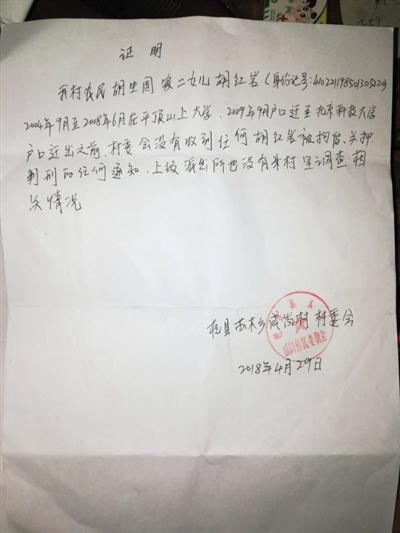 证 明
我村农民胡生国家二女儿胡红岩(身份证号:
2004年9月至2008年6月在平顶山上大学,2009年9月户口迁至北京科技大学
户口迁出之前,村委会没有收到任何胡红岩被拘留、关押
判刑的任何通知,上级派出所也没有来村里调查相
关情况
杞县苏木乡 村 村委会
2018年4月29日